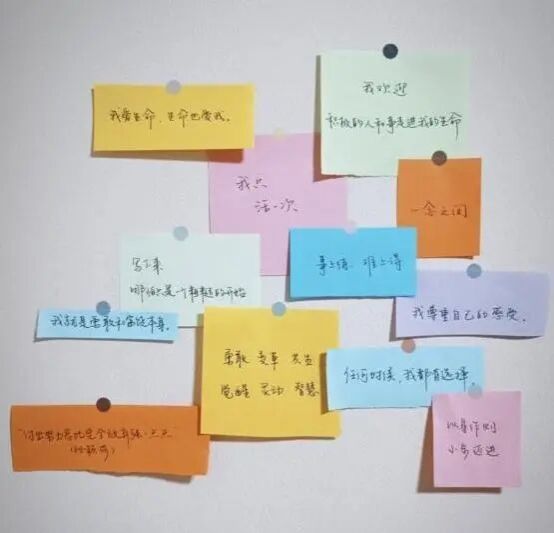 我爱生命，生命也爱我。
我欢迎
积极的人和事走进我的生命
我只
活一次
一念之间
写下来
哪怕只是一个粗糙的开始
事上练、难上得
我尊重自己的感受。
我就是勇敢和富饶本身。
勇敢 变革 共益
觉醒 灵动 智慧
任何时候，我都有选择。
以身作则
小步迈进
"付出努力总比完全放弃强一点点"